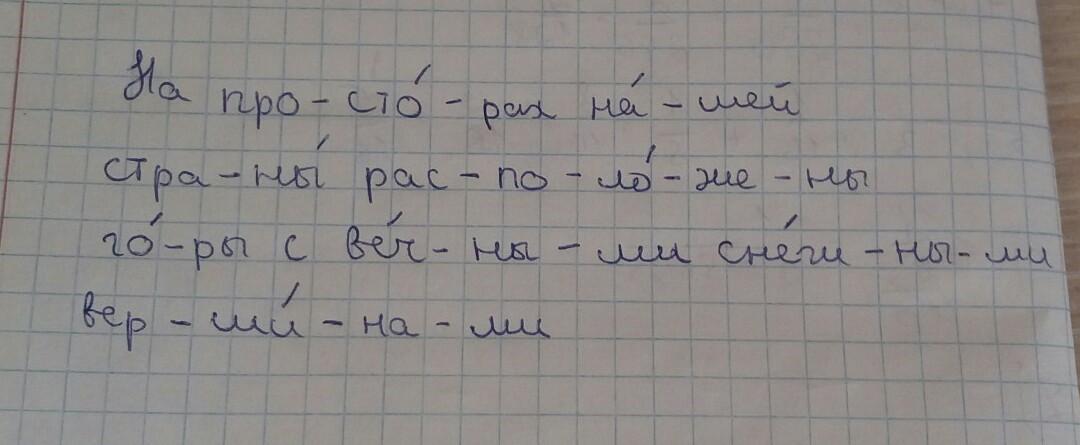 На про-сто́-рах на́-шей
стра-ны́ рас-по-ло́-же-ны
го́-ры с ве́ч-ны-ми сне́ги-ны-ми
вер-ши́-на-ми